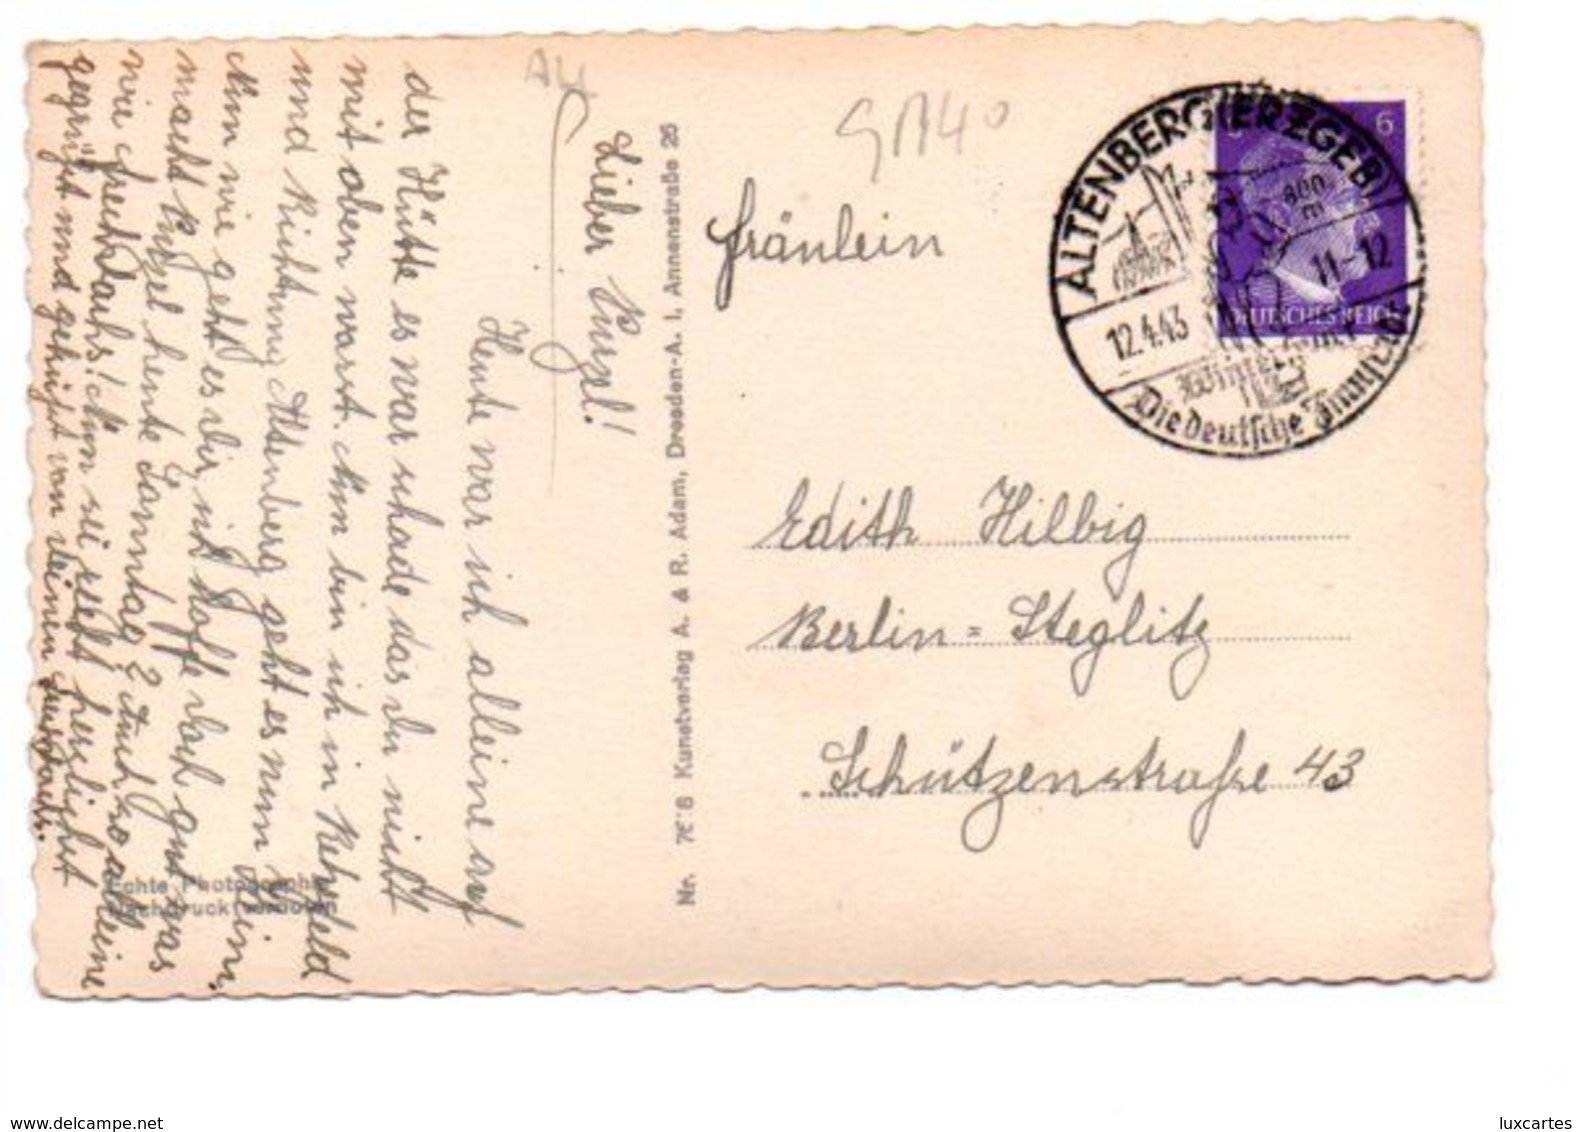 AK
GA40
Lieber Purzel!
Heute war ich alleine auf
der Hütte es war schade das du nicht
mit oben warst. Nun bin ich in Rehefeld
und Richtung Altenberg geht es nun heim.
Nun wie geht es dir, ich hoffe doch gut was
macht Purzel heute Sonntag? Auch so alleine
wie frechdachs! Nun sei recht herzlichst
gegrüßt und geküßt von deinem
Echte Photographie
Nachdruck verboten
Nr. 7618 Kunstverlag A. & R. Adam, Dresden-A. I, Annenstraße 25
ALTENBERG (ERZGEB)
800
m
12.4.43
11-12
Die deutsche
6
6
DEUTSCHES REICH
Fräulein
Edith Hilbig
Berlin=Steglitz
Schützenstraße 43
www.delcampe.net
luxcartes